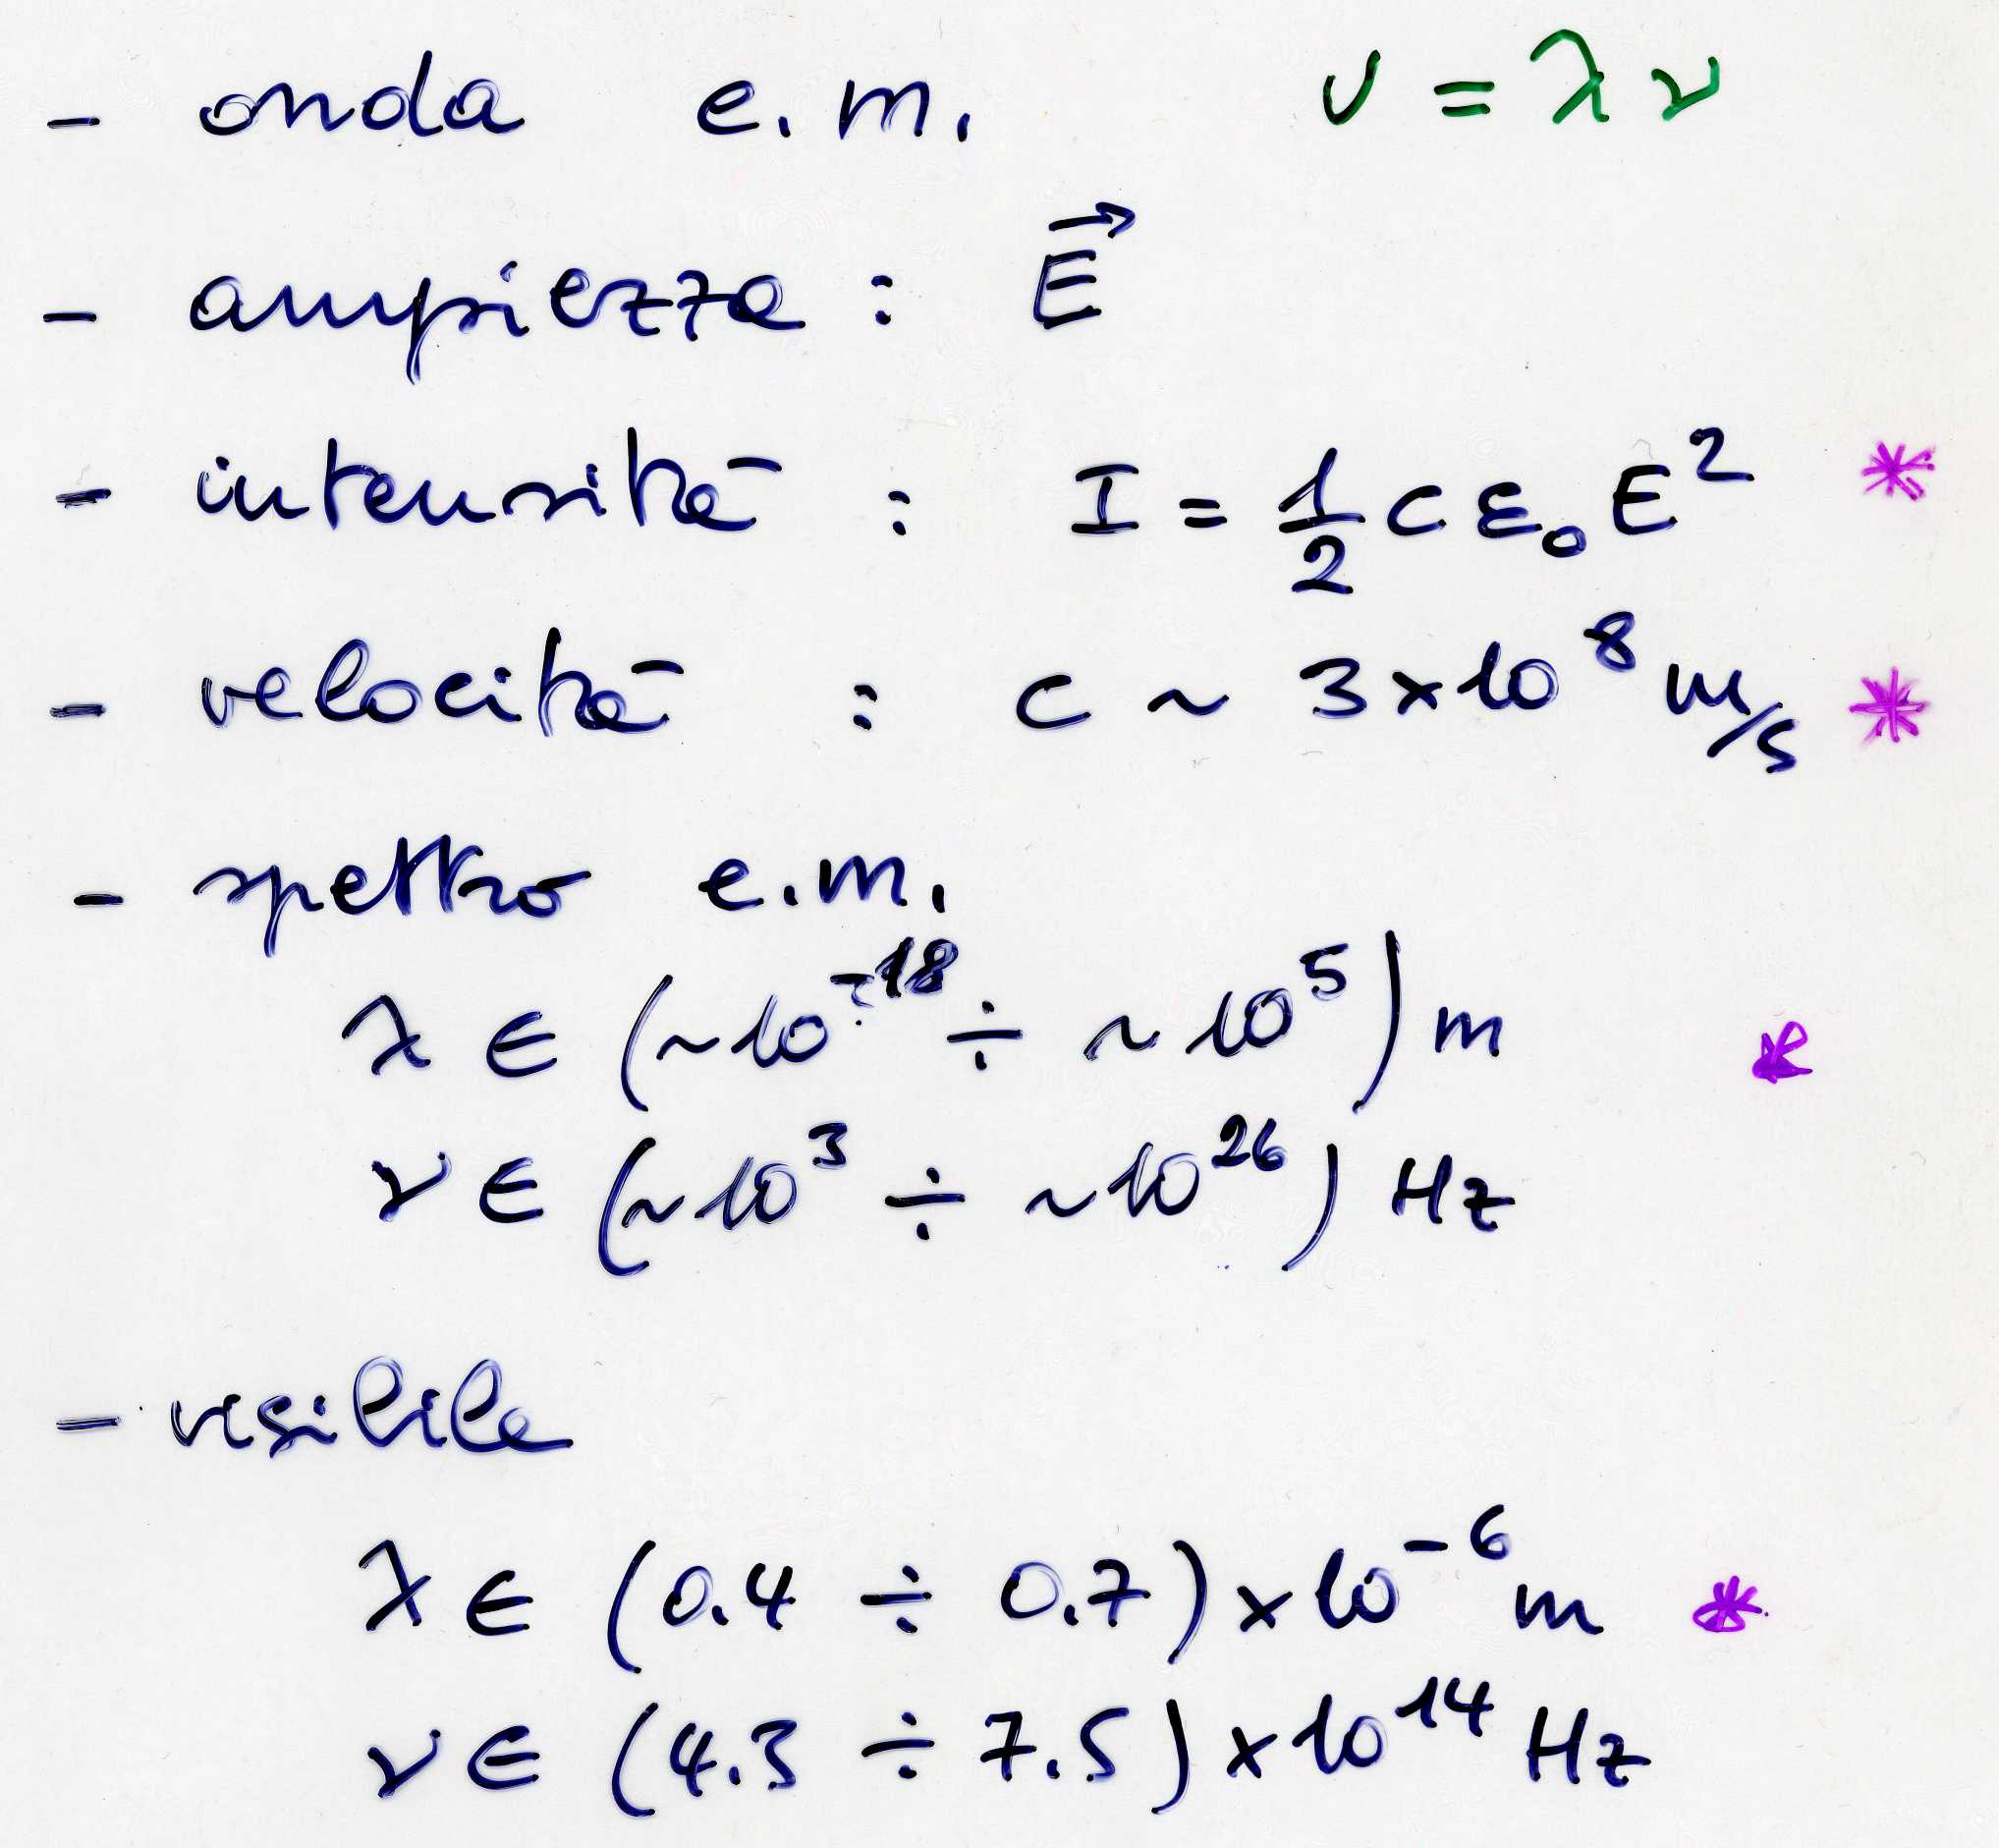 - onda e.m. v = λν
- ampiezza : E⃗
- intensità : I = 1/2 c ε₀ E² *
- velocità : c ~ 3×10⁸ m/s *
- spettro e.m.
λ ∈ (~10⁻¹⁸ ÷ ~10⁵) m *
ν ∈ (~10³ ÷ ~10²⁶) Hz
- visibile
λ ∈ (0.4 ÷ 0.7) × 10⁻⁶ m *
ν ∈ (4.3 ÷ 7.5) × 10¹⁴ Hz